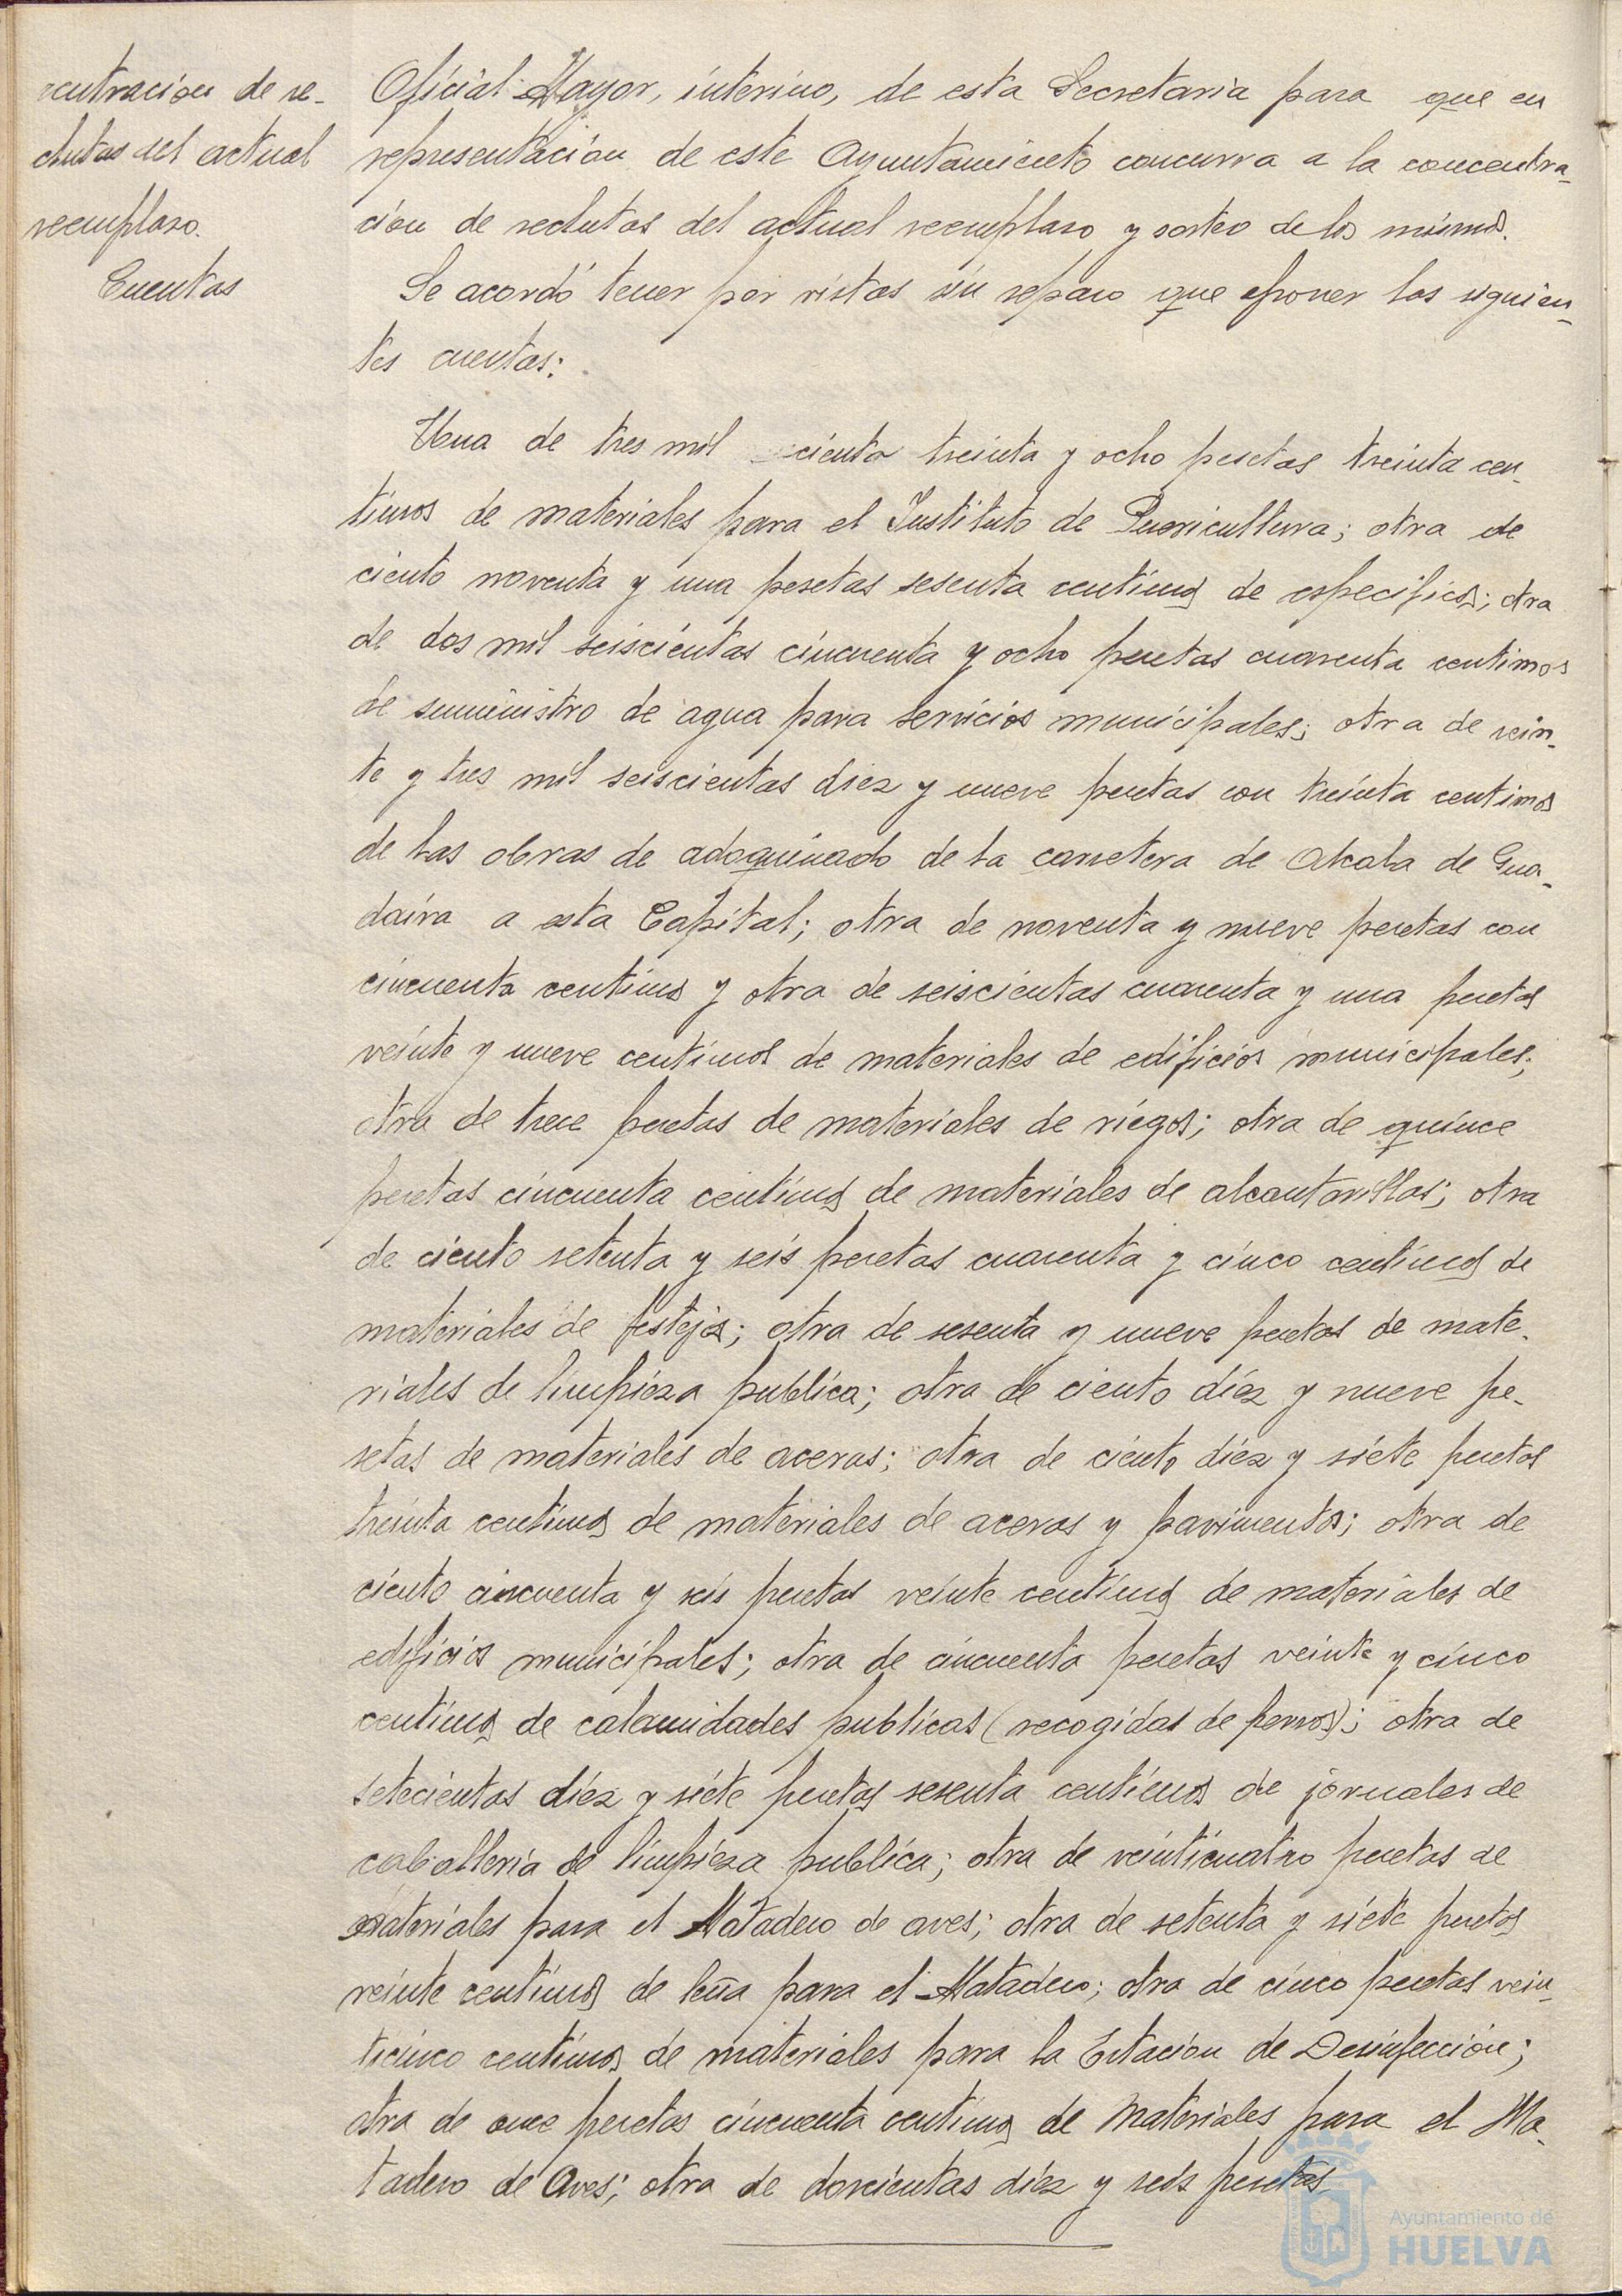 centracion de re-
clutas del actual
reemplazo.
Cuentas
Oficial Mayor, interino, de esta Secretaria para que en
representación de este Ayuntamiento concurra a la concentra-
ción de reclutas del actual reemplazo y sorteo de los mismos.
Se acordó tener por vistas sin reparo que oponer las siguien-
tes cuentas:
Una de tres mil ciento treinta y ocho pesetas treinta cen-
timos de materiales para el Instituto de Puericultura; otra de
ciento noventa y una pesetas sesenta centimos de especificos; otra
de dos mil seiscientas cincuenta y ocho pesetas cuarenta centimos
de suministro de agua para servicios municipales; otra de vein-
te y tres mil seiscientas diez y nueve pesetas con treinta centimos
de las obras de adoquinado de la carretera de Alcala de Gua-
daira a esta Capital; otra de noventa y nueve pesetas con
cincuenta centimos y otra de seiscientas cuarenta y una pesetas
veinte y nueve centimos de materiales de edificios municipales;
otra de trece pesetas de materiales de riegos; otra de quince
pesetas cincuenta centimos de materiales de alcantarillas; otra
de ciento setenta y seis pesetas cuarenta y cinco centimos de
materiales de festejos; otra de sesenta y nueve pesetas de mate-
riales de limpieza publica; otra de ciento diez y nueve pe-
setas de materiales de aceras; otra de ciento diez y siete pesetas
treinta centimos de materiales de aceras y pavimentos; otra de
ciento cincuenta y seis pesetas veinte centimos de materiales de
edificios municipales; otra de cincuenta pesetas veinte y cinco
centimos de calamidades publicas (recogidas de perros); otra de
setecientas diez y siete pesetas sesenta centimos de jornales de
caballeria de limpieza publica; otra de veinticuatro pesetas de
materiales para el Matadero de aves; otra de setenta y siete pesetas
veinte centimos de leña para el Matadero; otra de cinco pesetas vein-
ticinco centimos de materiales para la Estación de Desinfección;
otra de once pesetas cincuenta centimos de materiales para el Ma-
tadero de Aves; otra de doscientas diez y seis pesetas
Ayuntamiento de
HUELVA